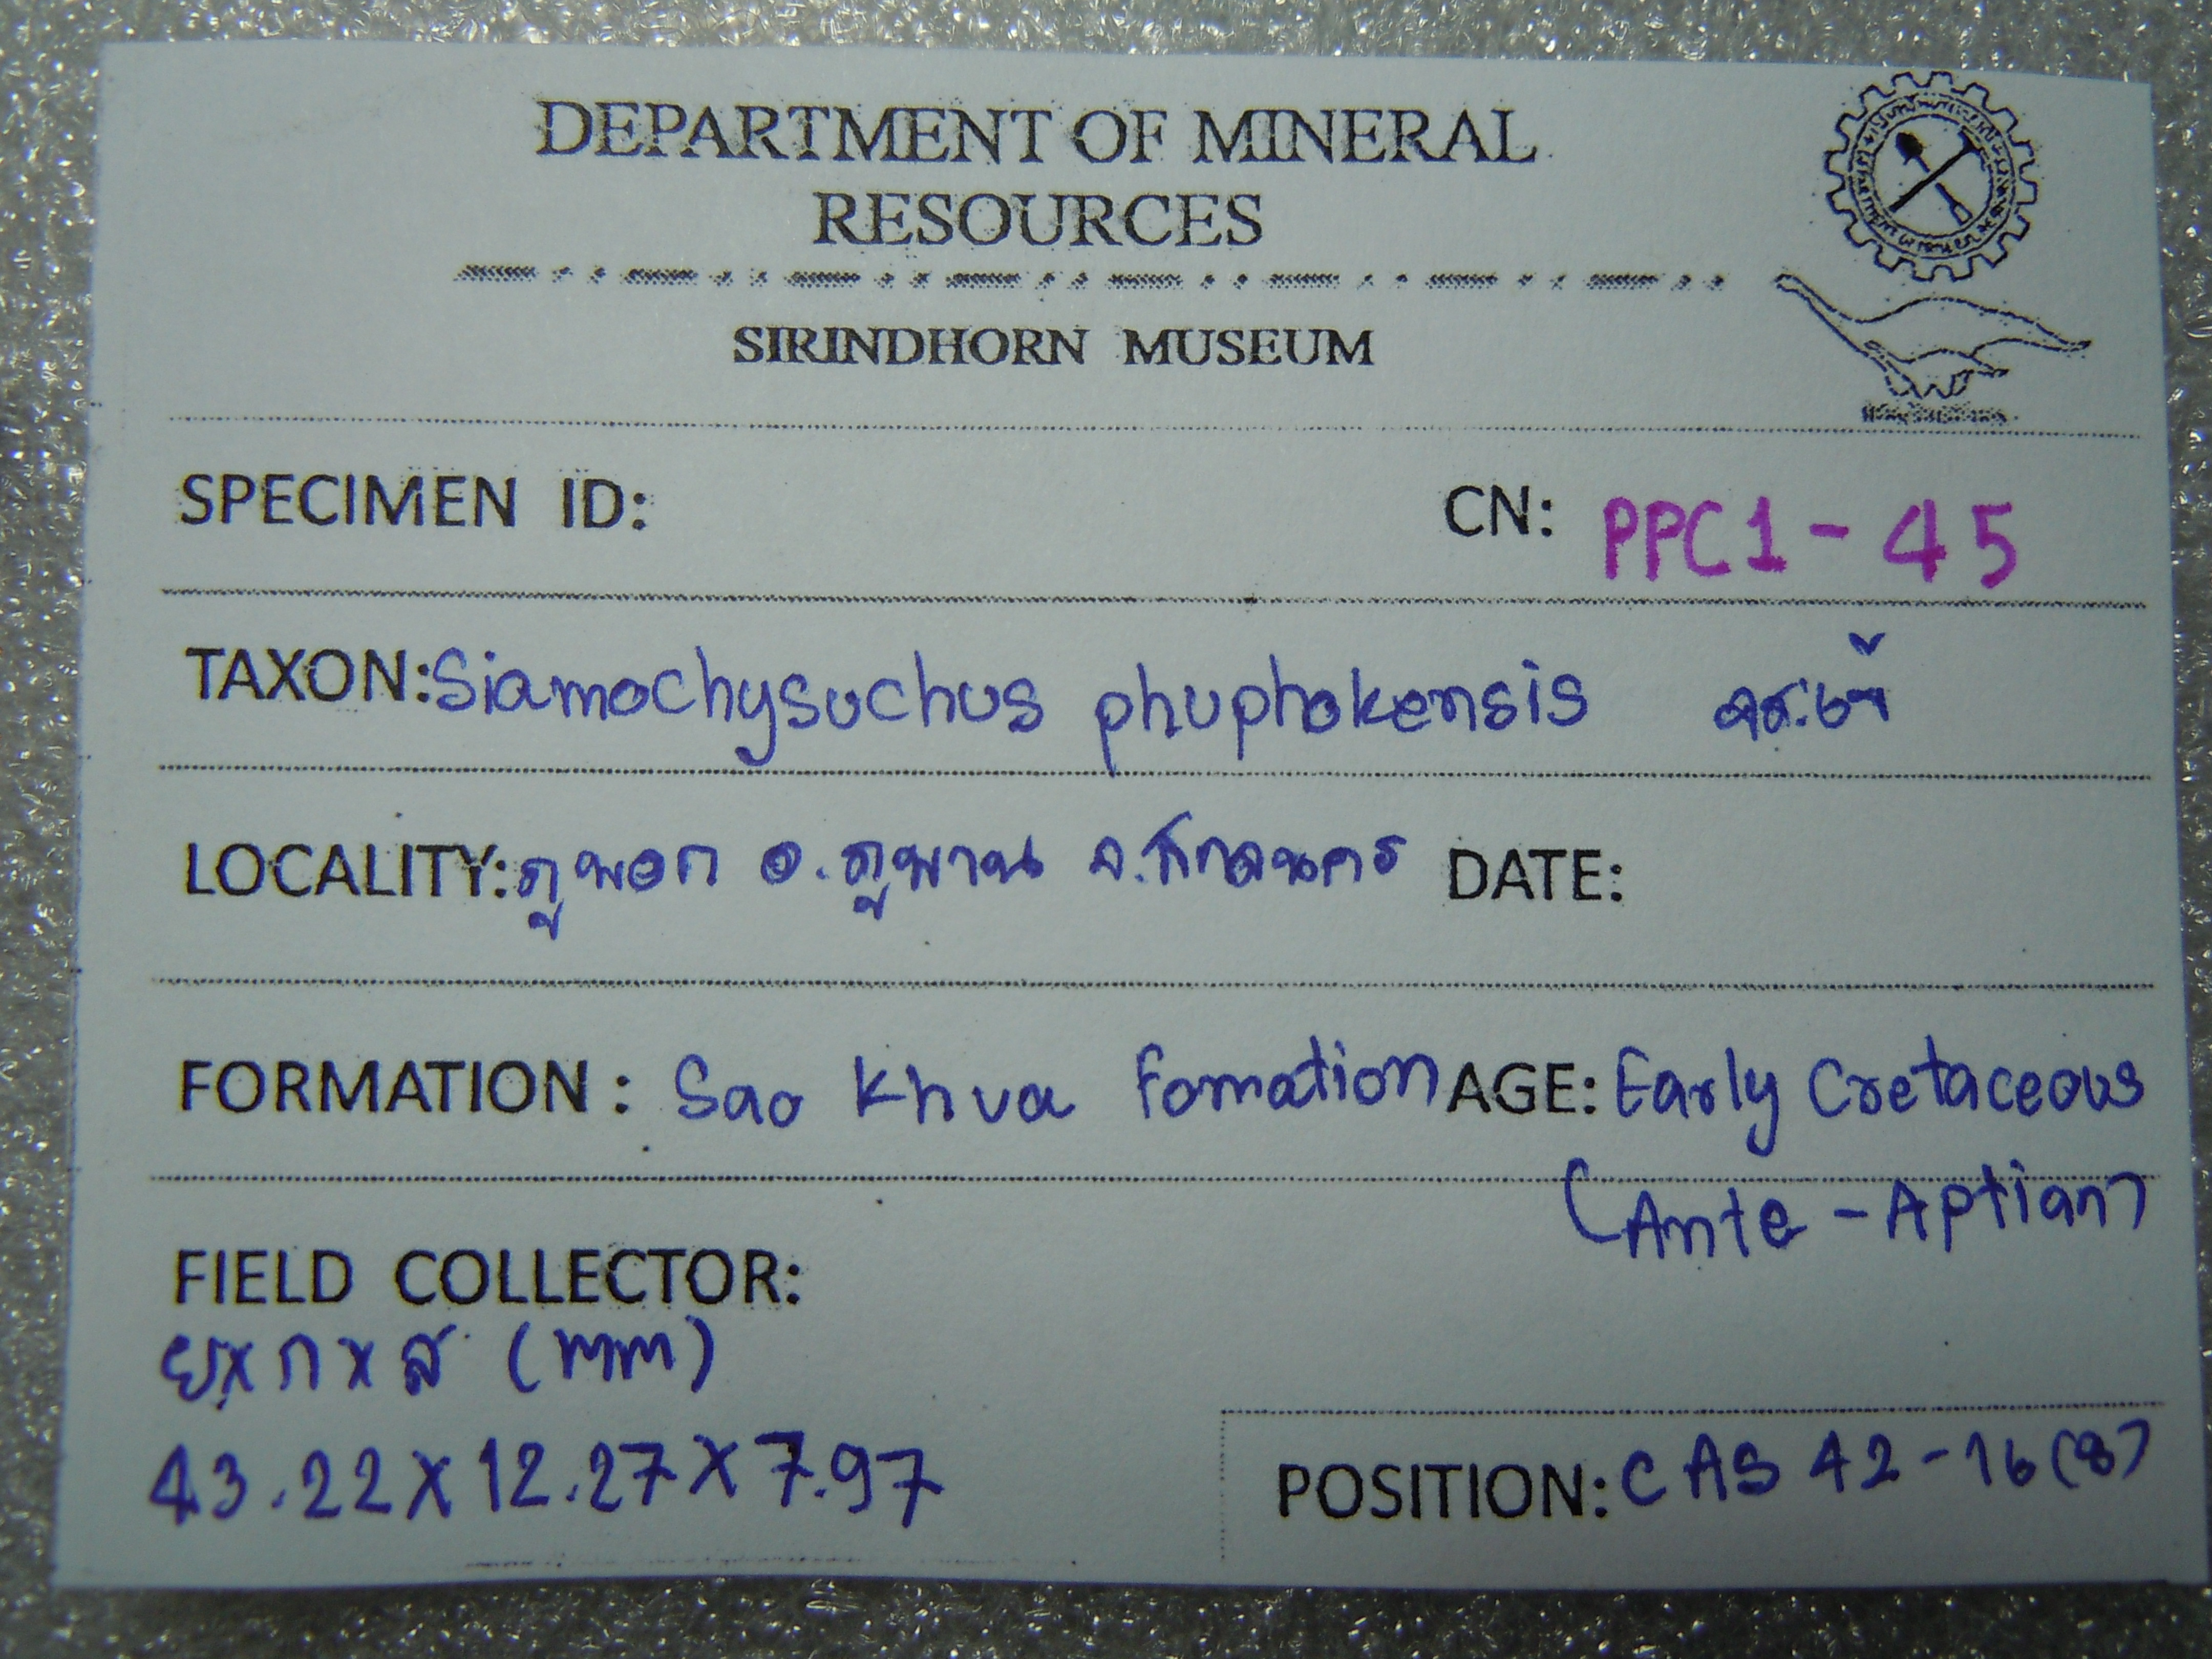 DEPARTMENT OF MINERAL
RESOURCES
SIRINDHORN MUSEUM
SPECIMEN ID: CN: PPC1-45
TAXON: Siamochysuchus phuphokensis
LOCALITY: ภูพอก อ.ภูพาน จ.สกลนคร DATE:
FORMATION : Sao Khua Fomation AGE: Early Cretaceous
(Ante-Aptian)
FIELD COLLECTOR:
ยxกxส (mm)
43.22x12.27x7.97
POSITION: CAS 42-16(8)